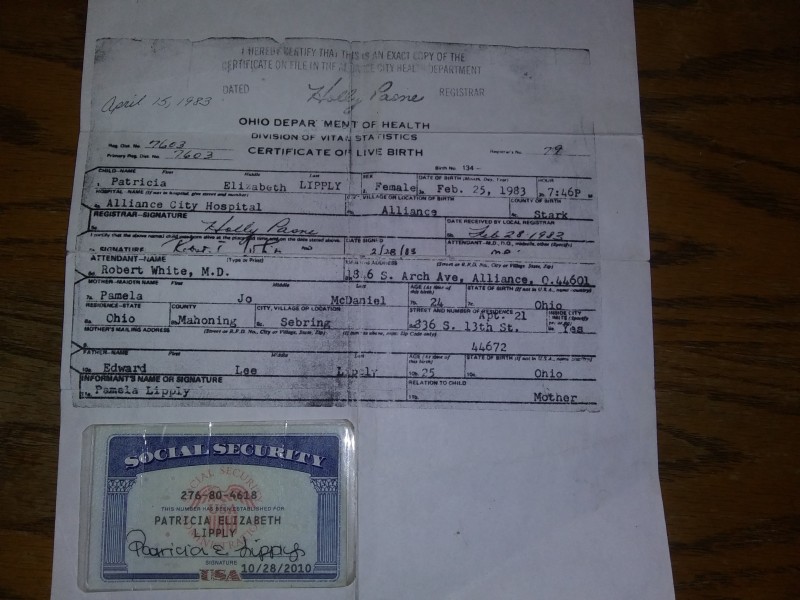 I HEREBY CERTIFY THAT THIS IS AN EXACT COPY OF THE
CERTIFICATE ON FILE IN THE ALLIANCE CITY HEALTH DEPARTMENT
DATED REGISTRAR
April 15, 1983 Holly
OHIO DEPARTMENT OF HEALTH
DIVISION OF VITAL STATISTICS
Reg. Dist. No. 7603
Primary Reg. Dist. No. 7603 CERTIFICATE OF LIVE BIRTH Registrar's No. 79
Birth No. 134-
CHILD-NAME First Middle Last SEX DATE OF BIRTH (Month, Day, Year) HOUR
Patricia Elizabeth LIPPLY Female Feb. 25, 1983 7:46P
HOSPITAL-NAME (If not in hospital, give street and number) CITY, VILLAGE OR LOCATION OF BIRTH COUNTY OF BIRTH
Alliance City Hospital Alliance Stark
REGISTRAR-SIGNATURE DATE RECEIVED BY LOCAL REGISTRAR
Holly Feb 28, 1983
SIGNATURE DATE SIGNED
2/28/83
ATTENDANT-NAME (Type or Print) (Street or R.F.D. No., City or Village, State, Zip)
Robert White, M.D. S. Arch Ave, Alliance, O.44601
MOTHER-MAIDEN NAME First Middle Last AGE (At time of this birth) STATE OF BIRTH
Pamela Jo McDaniel 24 Ohio
RESIDENCE-STATE COUNTY CITY, VILLAGE OF LOCATION STREET AND NUMBER OF RESIDENCE
Apt. 21
Ohio Mahoning Sebring 836 S. 13th St. Yes
MOTHER'S MAILING ADDRESS (Street or R.F.D. No., City or Village, State, Zip)
44672
FATHER-NAME First Middle Last AGE (At time of this birth) STATE OF BIRTH
Edward Lee Lipply 25 Ohio
INFORMANT'S NAME OR SIGNATURE RELATION TO CHILD
Pamela Lipply Mother
SOCIAL SECURITY
276-80-4618
THIS NUMBER HAS BEEN ESTABLISHED FOR
PATRICIA ELIZABETH
LIPPLY
Patricia E Lipply
SIGNATURE
USA 10/28/2010